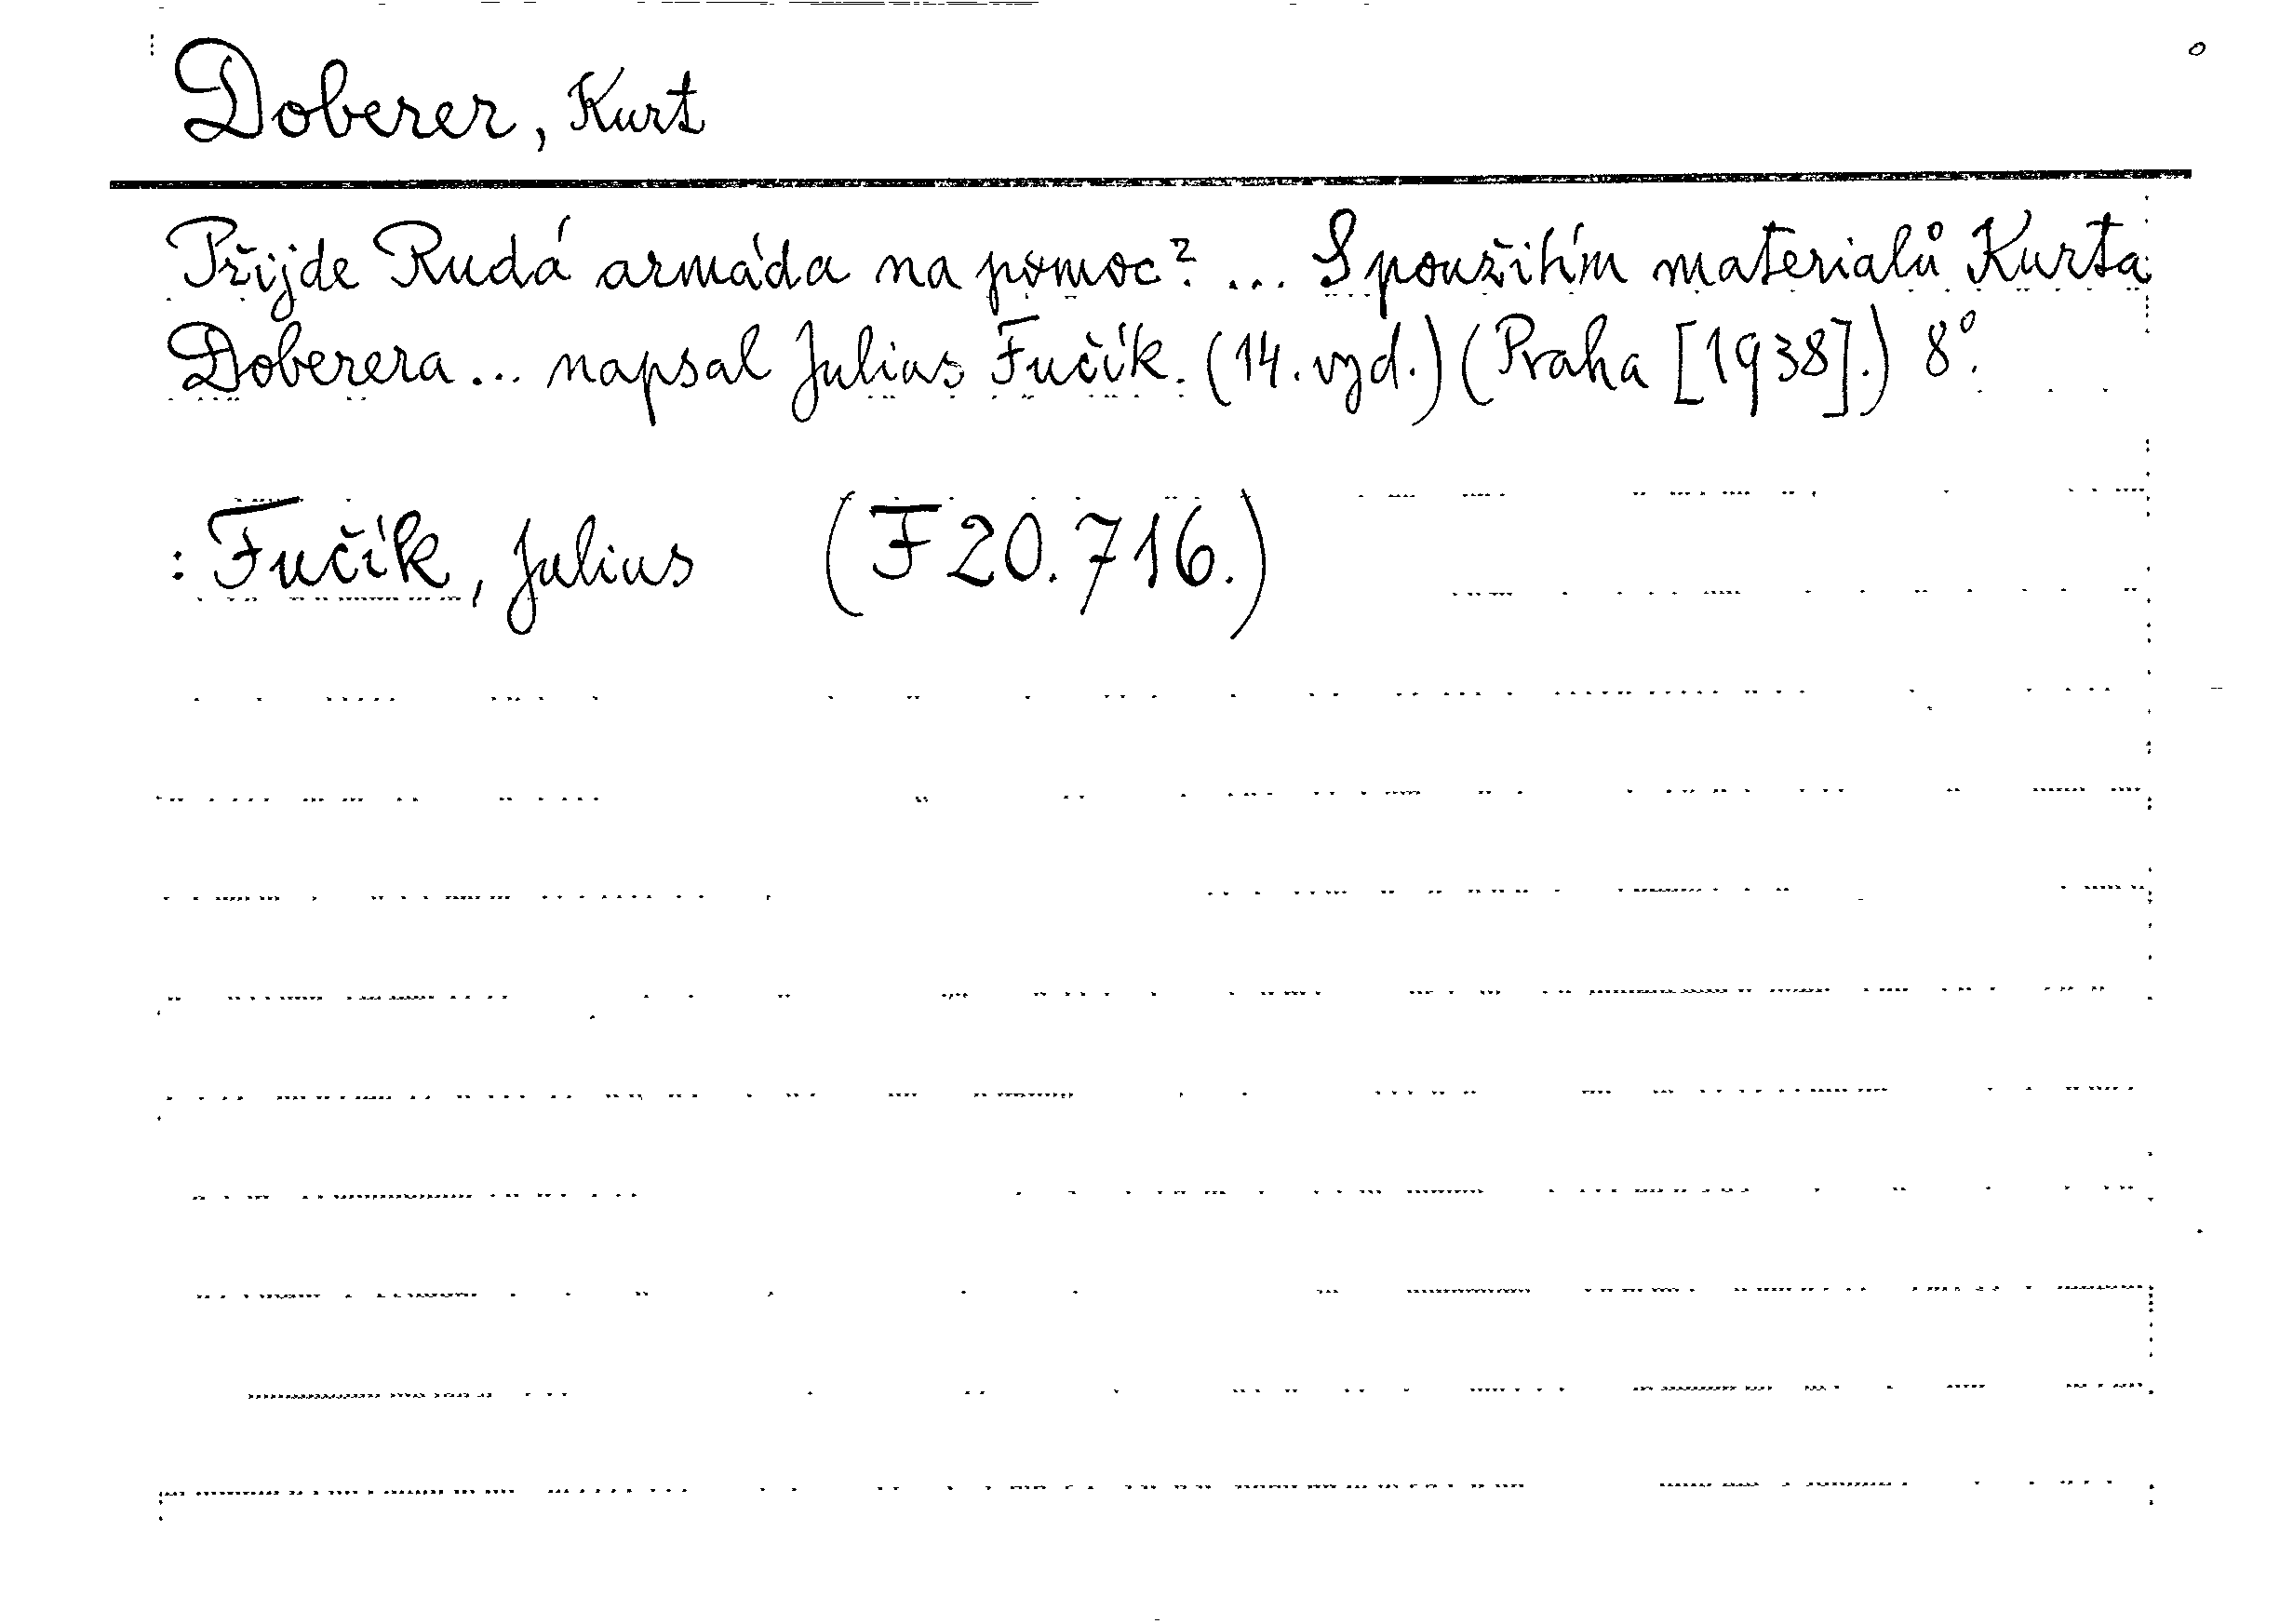 Doberer, Kurt
Přijde Rudá armáda na pomoc? ... S použitím materialů Kurta
Doberera ... napsal Julius Fučík. (14. vyd.) (Praha [1938].) 8°.
: Fučík, Julius (F 20.716.)